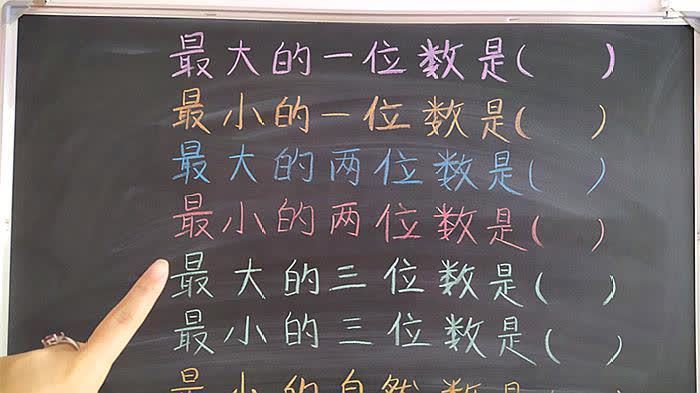 最大的一位数是(　)
最小的一位数是(　)
最大的两位数是(　)
最小的两位数是(　)
最大的三位数是(　)
最小的三位数是(　)
最小的自然数是